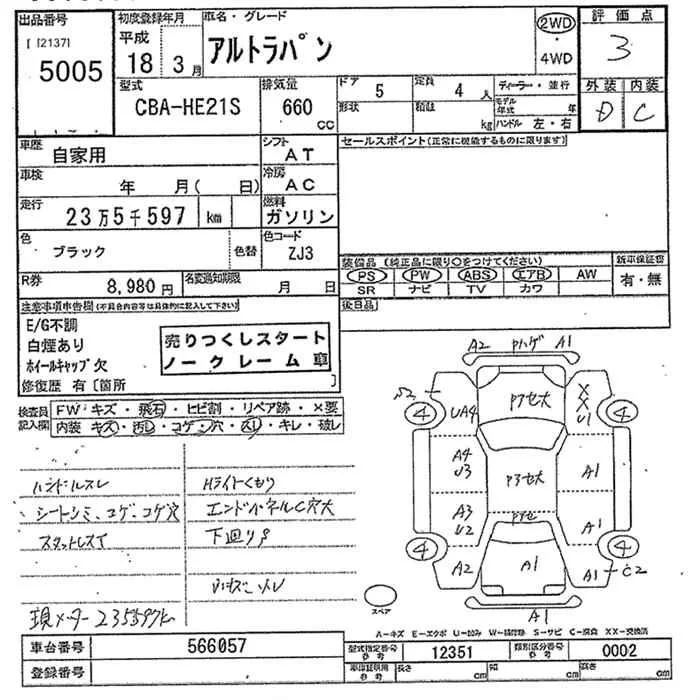 出品番号
[ [2137]
5005
初度登録年月
平成
18 3月
車名・グレード
アルトラパン
2WD
・
4WD
評価点
3
外装 内装
D C
型式
CBA-HE21S
排気量
660
cc
ドア 5
形状
定員 4 人
積載 kg
ディーラー・並行
モデル年式 年
ハンドル 左・右
車歴 自家用
シフト AT
セールスポイント(正常に機能するものに限ります)
車検 年 月( 日)
冷房 AC
走行 23万5千597 km
燃料 ガソリン
色 ブラック 色替
色コード ZJ3
装備品 (純正品に限り○をつけてください)
新車保証書
PS PW ABS エアB AW
SR ナビ TV カワ
有・無
R券 8,980円
名変通知期限 月 日
後日品
注意事項申告欄(不具合内容等は具体的に記入して下さい)
E/G不調
白煙あり
ホイールキャップ欠
修復歴 有〔箇所 〕
売りつくしスタート
ノークレーム車
検査員記入欄
FW キズ・飛石・ヒビ割・リペア跡・×要
内装 キズ・汚レ・コゲ・穴・スレ・キレ・破レ
ハンドルスレ
シートシミ、コゲ、コゲ穴
スタットレスT
現メーター235597K
Hライトくもり
エンドパネルC穴大
A2 Pハゲ A1
S2
4 UA4 P7セ大 XX U1 4
A4
U3 P3セ大 A1
A3
U2 P7セ A1
4 4
A2 A1 A1 C2
A1
スペア
A-キズ E-エクボ U-凹み W-補修跡 S-サビ C-腐食 XX-交換済
車台番号 566057
型式指定番号 参考 12351
類別区分番号 参考 0002
登録番号
長さ cm 幅 cm 高さ cm